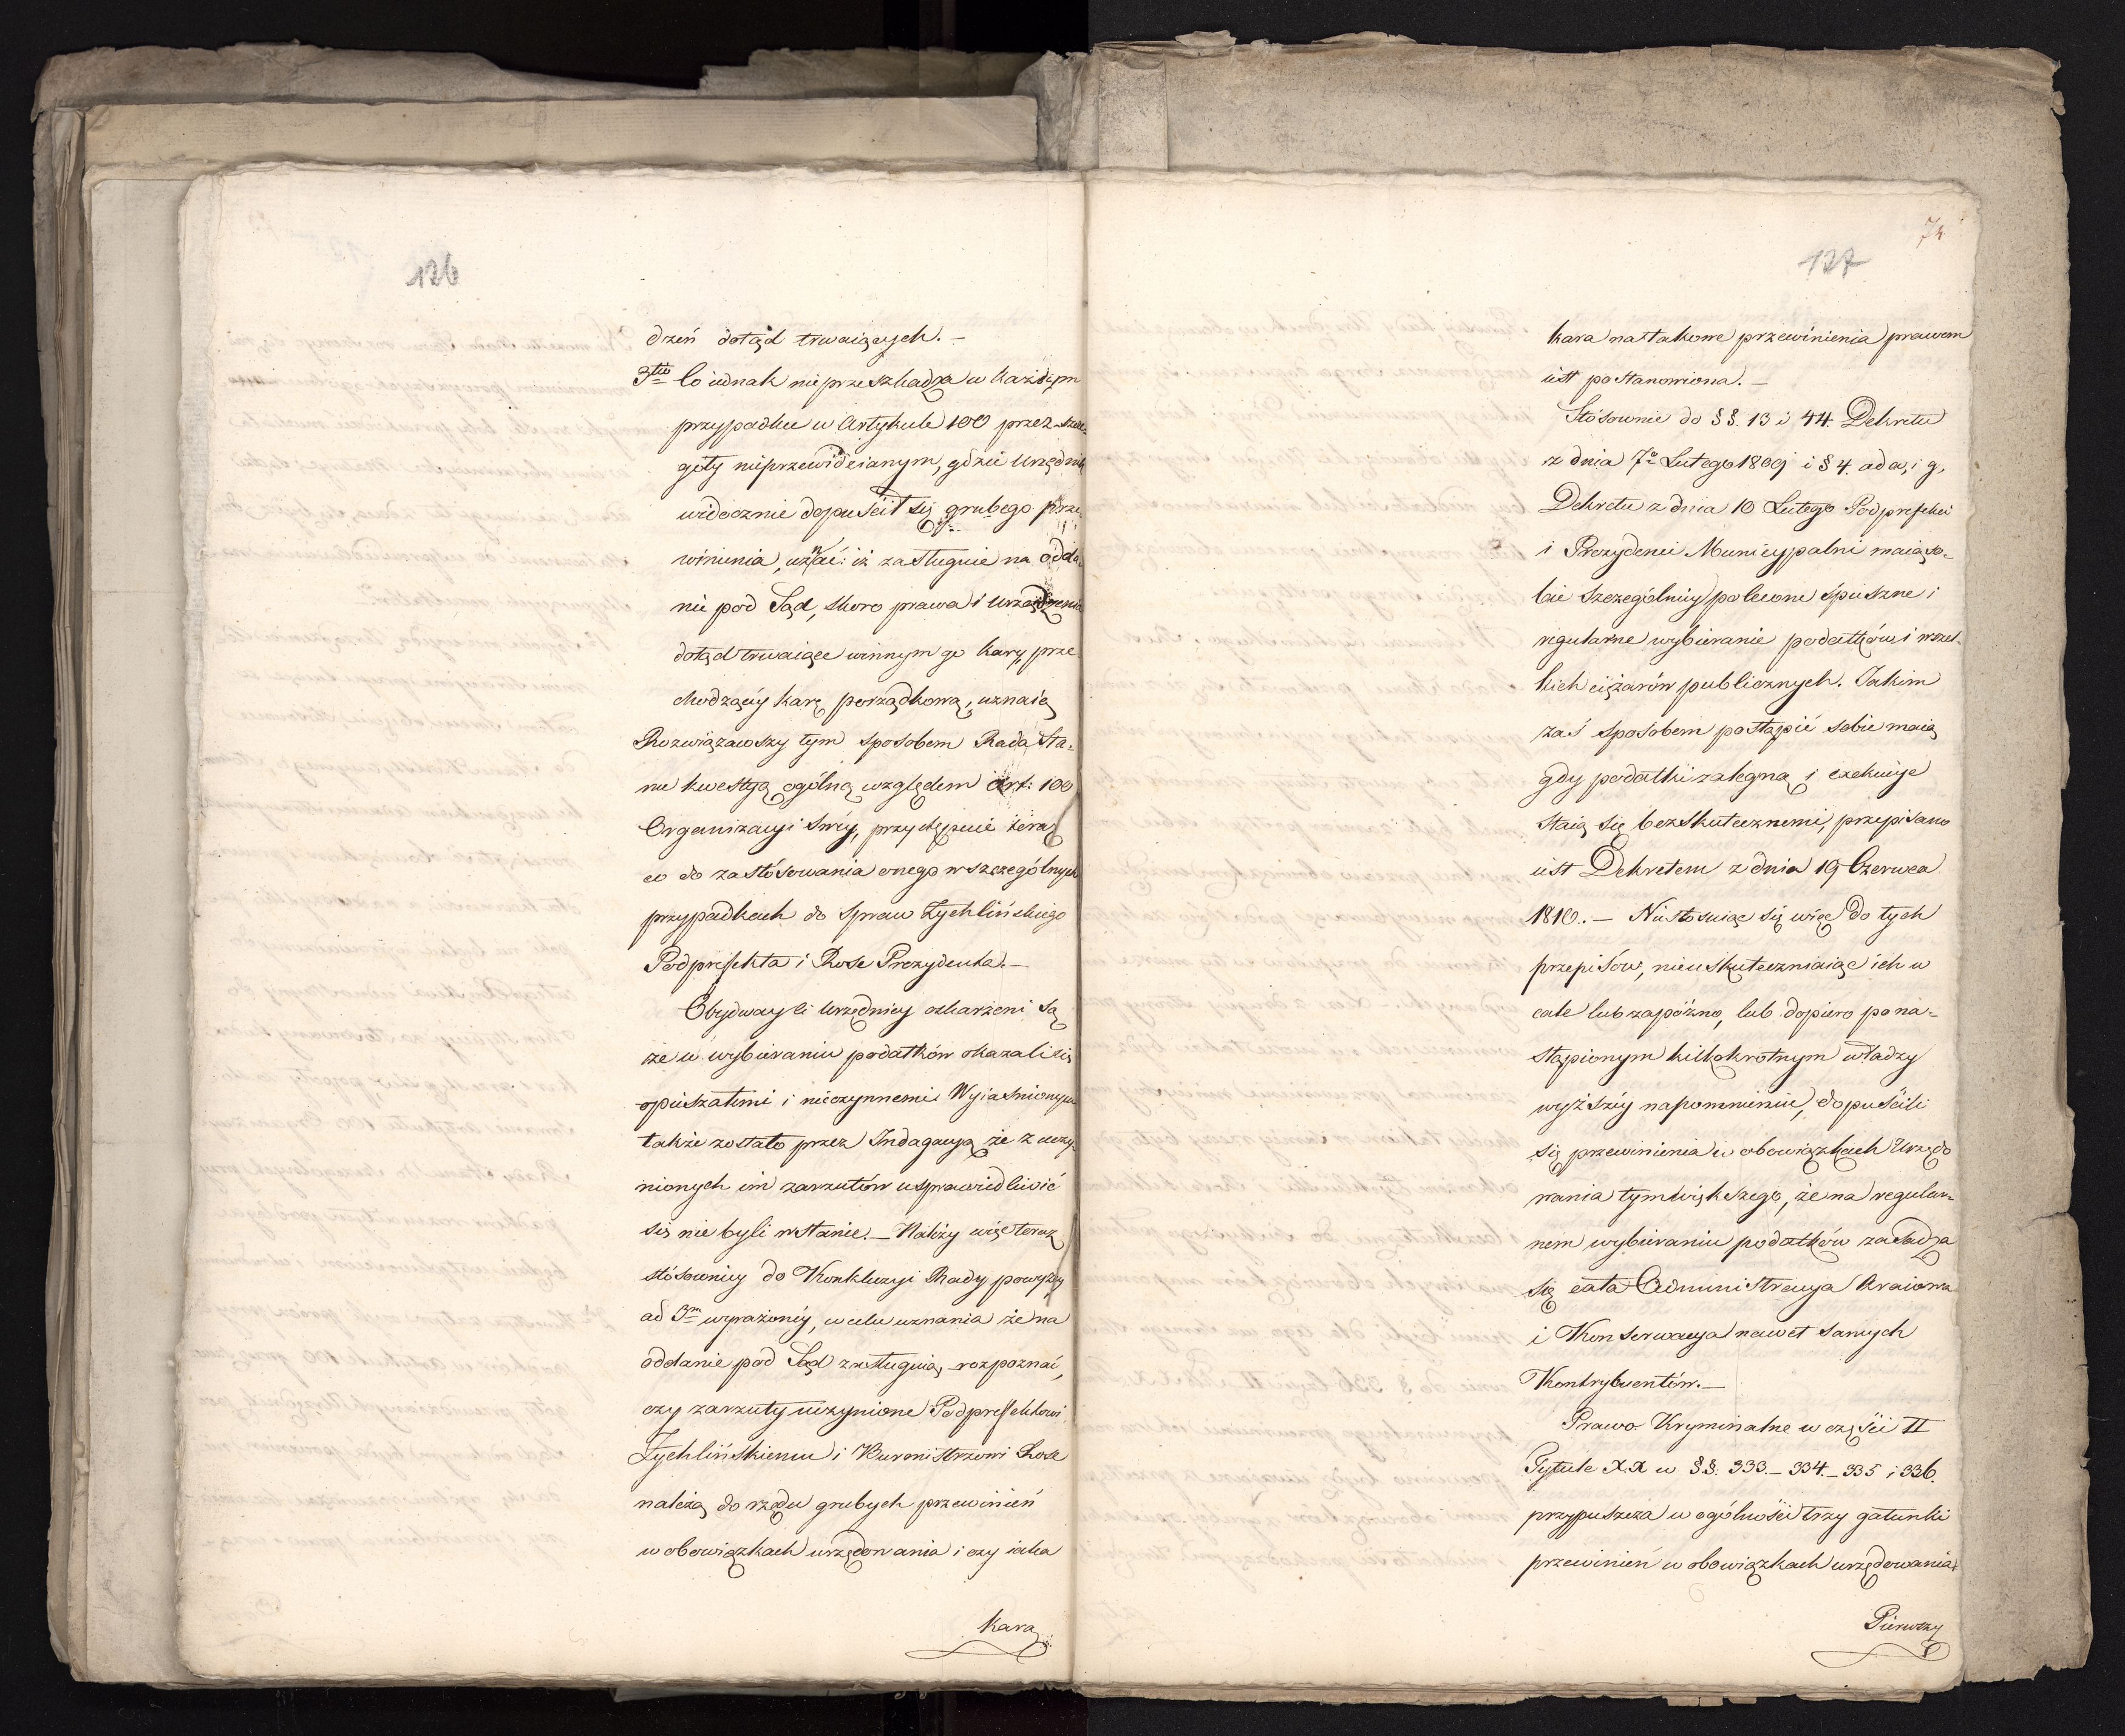 126
dzeń dotąd trwaiących. –
3tio Co iednak nie przeszkadza w każdym
przypadku w Artykule 100 przez szcze-
góły nieprzewidzianym, gdzie Urzędnik
widocznie dopuścił się grubego prze-
winienia, uznać: iż zasługuie na odda-
nie pod Sąd, skoro prawa i urządzenia
dotąd trwaiące winnym go kary, prze-
chodzącéy karę porządkową, uznaią
Rozwiązawszy tym sposobem Rada Sta-
nu kwestyą ogólną względem Art: 100
Organizacyi swéy, przystępuie teraz
co do zastósowania onego w szczególnych
przypadkach do spraw Zychlińskiego
Podprefekta i Rose Prezydenta. –
Obydway ci urzędnicy oskarżeni są
że w wybieraniu podatków okazali się
opieszałemi i nieczynnemi Wyiaśnionym
także zostało przez Indagacyą że z uczy-
nionych im zarzutów usprawiedliwić
się nie byli w stanie. – Należy więc teraz
stósownie do Konkluzyi Rady powyżéy
ad 3m wyrażonéy, w celu uznania że na
oddanie pod Sąd zasługuią, rozpoznać,
czy zarzuty uczynione Podprefektowi
Zychlińskiemu i Burmistrzowi Rose
należą do rzędu grubych przewinień
w obowiązkach urzędowania i czy iaka
Kara
74
127
kara na takowe przewinienia prawem
iest postanowiona. –
Stósownie do §§. 13 i 44. Dekretu
z dnia 7o Lutego 1809 i § 4. ad a, i g,
Dekretu z dnia 10 Lutego Podprefekci
i Prezydenci Municypalni maią so-
bie szczególniéy polecone śpieszne i
regularne wybieranie podatków i wszel-
kich ciężarów publicznych. Jakim
zaś sposobem postąpić sobie maią
gdy podatki zalegną i exekucye
staią się bezskutecznemi, przepisano
iest Dekretem z dnia 19 Czerwca
1810. – Niestosuiąc się więc do tych
przepisów, nieuskuteczniaiąc ich w
cale lub zapóźno, lub dopiero po na-
stąpionym kilkokrotnym władzy
wyższéy napomnieniu, dopuścili
się przewinienia w obowiązkach Urzędo
wania tym większego, że na regular-
nem wybieraniu podatków zasadza
się cała Administracya Kraiowa
i Konserwacya nawet samych
Kontrybuentów. –
Prawo Kryminalne w części II
Tytule XX w §§. 333. – 334. – 335 i 336.
przypuszcza w ogólności trzy gatunki
przewinień w obowiązkach urzędowania.
Pierwszy